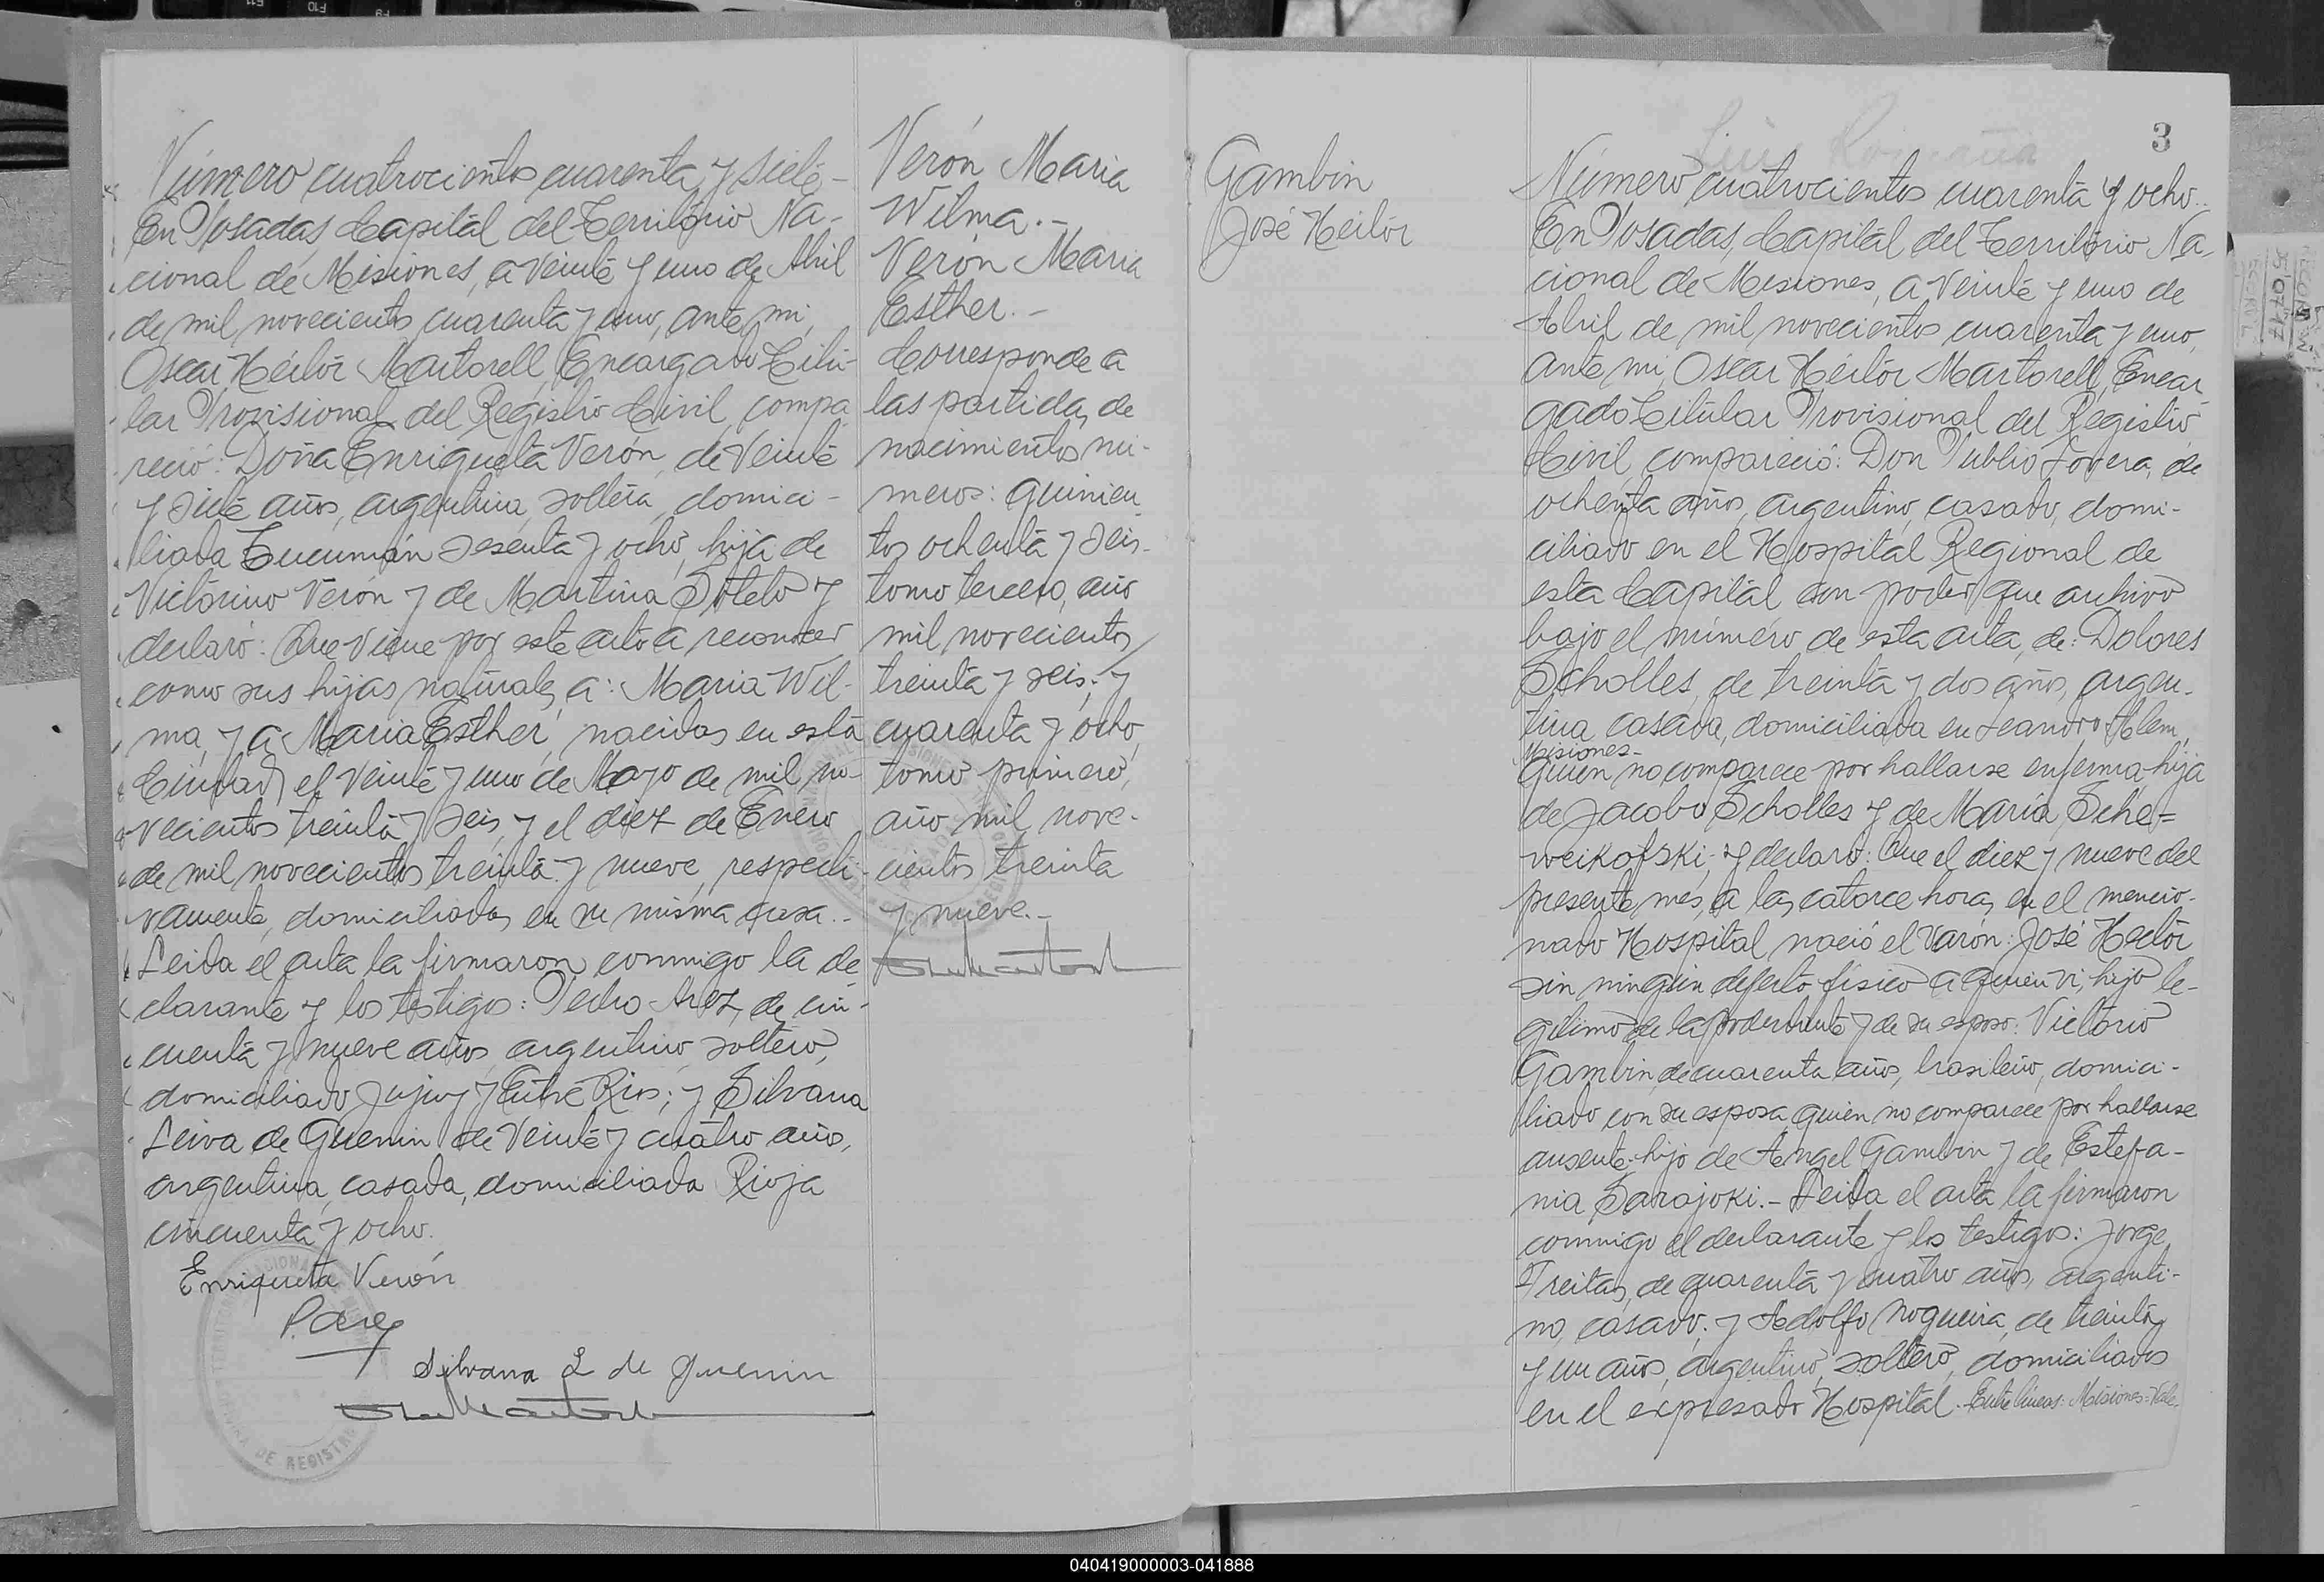 Número cuatrocientos cuarenta y siete-
En Posadas, Capital del Territorio Na-
cional de Misiones, a veinte y uno de Abril
de mil novecientos cuarenta y uno, ante mi,
Oscar Héctor Martorell, Encargado Titu-
lar Provisional del Registro Civil, compa
reció: Doña Enriqueta Verón, de veinte
y siete años, argentina, soltera, domici-
liada Tucumán sesenta y ocho, hija de
Victorino Verón y de Martina Sotelo y
declaró: Que viene por este acto a reconocer
como sus hijas naturales a: Maria Wil-
ma, y a Maria Esther, nacidas en esta
Ciudad el veinte y uno de Mayo de mil no-
vecientos treinta y seis, y el diez de Enero
de mil novecientos treinta y nueve, respecti-
vamente, domiciliadas en su misma casa.-
Leida el acta la firmaron conmigo la de
clarante y los testigos: Pedro Arez, de cin-
cuenta y nueve años, argentino, soltero,
domiciliado Jujuy y Entre Rios; y Silvana
Leiva de Guenin de veinte y cuatro años,
argentina, casada, domiciliada Rioja
cincuenta y ocho.
Enriqueta Verón
P. Arez
Silvana L de Guenin
Verón Maria
Wilma.-
Verón Maria
Esther.-
Corresponde a
las partidas de
nacimientos nú-
meros: quinien
tos ochenta y seis-
tomo tercero, año
mil novecientos
treinta y seis; y
cuarenta y ocho,
tomo primero,
año mil nove-
cientos treinta
y nueve.-
Gambin
José Héctor
3
Número cuatrocientos cuarenta y ocho.
En Posadas, Capital del Territorio Na-
cional de Misiones, a veinte y uno de
Abril de mil novecientos cuarenta y uno,
ante mi, Oscar Héctor Martorell, Encar
gado Titular Provisional del Registro
Civil, compareció: Don Publio Lovera, de
ochenta años, argentino, casado, domi-
ciliado en el Hospital Regional de
esta Capital con poder que archivo
bajo el número de esta acta, de: Dolores
Scholles, de treinta y dos años, argen-
tina casada, domiciliada en Leandro Alem,
Misiones-
quien no comparece por hallarse enferma, hija
de Jacobo Scholles y de Maria Sche=
weikofski; y declaró: Que el diez y nueve del
presente mes, a las catorce horas en el mencio-
nado Hospital nació el varón: José Hector
sin ningún defecto físico a quien vi, hijo le-
gitimo de la poderdante y de su esposo: Victorio
Gambin, de cuarenta años, brasileño, domici-
liado con su esposa, quien no comparece por hallarse
ausente, hijo de Angel Gambin y de Estefa-
nia Sarajoki.- Leida el acta la firmaron
conmigo el declarante y los testigos: Jorge
Freitas, de cuarenta y cuatro años, argenti-
no, casado; y Adolfo Nogueira, de treinta
y un años, argentino, soltero, domiciliados
en el expresado Hospital. Entre lineas: Misiones=Vale.
040419000003-041888